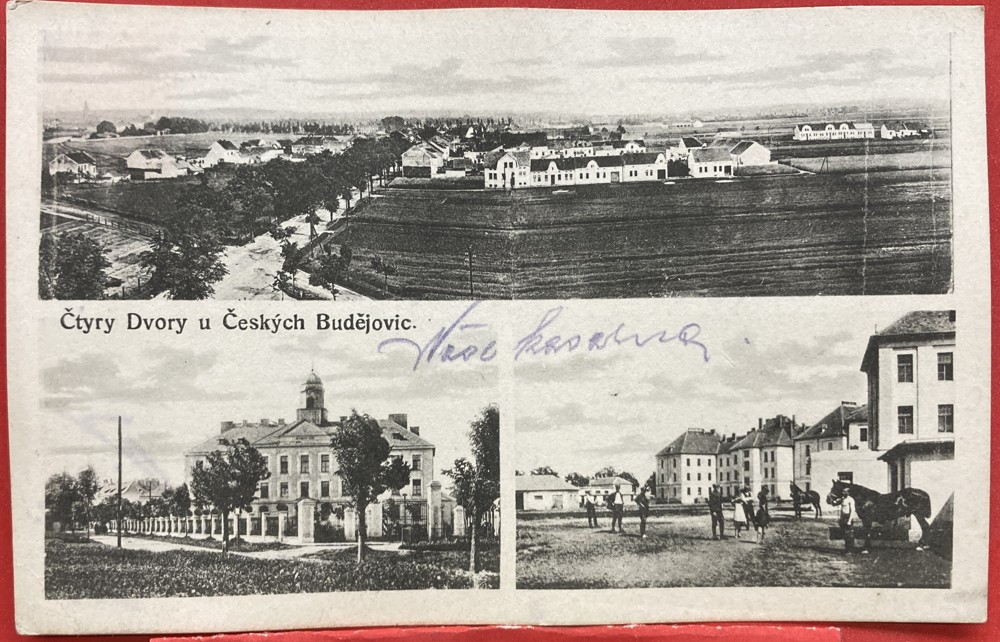 Čtyry Dvory u Českých Budějovic.
Naše kasárna.